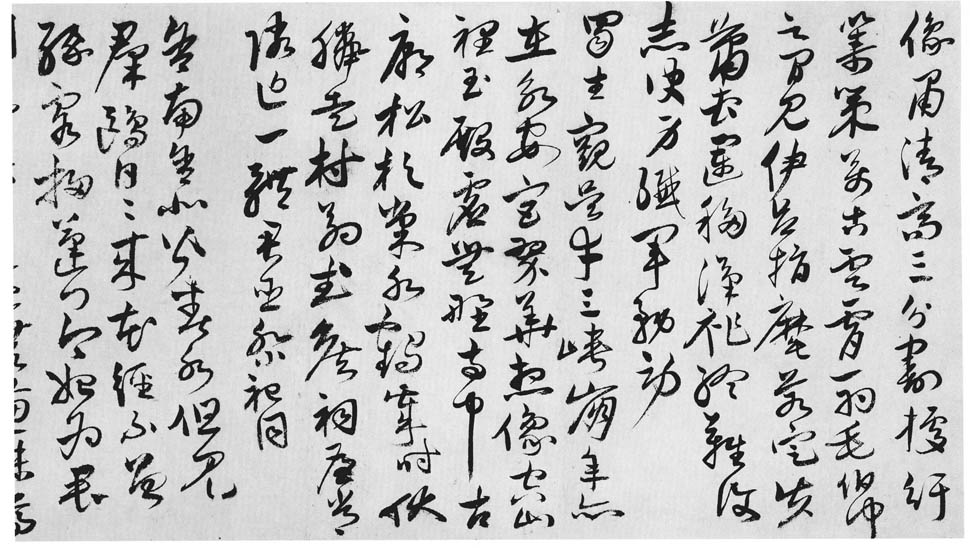 像肅清高三分割據紆
籌策萬古雲霄一羽毛伯仲
之間見伊呂指麾若定失
蕭曹運移漢祚終難復
志決身殲軍務勞
蜀主窺吳幸三峽崩年亦
在永安宮翠華想像空山
裡玉殿虛無野寺中古
廟松杉巢水鶴歲時伏
臘走村翁武侯祠屋常
隣近一體君臣祭祀同
舍南舍北皆春水但見
羣鷗日〻來花徑不曾
緣客掃蓬門今始為君
無兼味